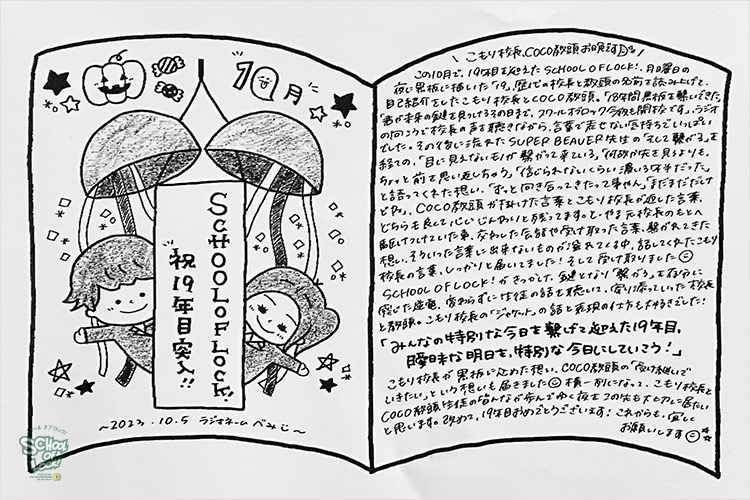 10月
SCHOOL OF LOCK!
祝19年目突入!!
〜2023.10.5 ラジオネーム べみじ〜
こもり校長、COCO教頭お晩守る
この10月で、19年目を迎えたSCHOOL OF LOCK!。月曜日の
夜に黒板に描いた「19」。歴代の校長と教頭の名前を読み上げて、
自己紹介をしたこもり校長とCOCO教頭。「18年間黒板を繋いできた。
君が未来の鍵を見つけるその日まで、スクールオブロック今夜も開校です。」ラジオ
の向こうで校長の声を聴きながら、言葉で表せない気持ちでいっぱい
でした。その後に流れたSUPER BEAVER先生の「そして繋がる」を
経ての、「目に見えないものが繋がって来ている」
ちょっと前を思い返しちゃう」「信じられないくらい濃い18年だった」
と語ってくれた想い。「ずっと向き合ってきたって事やん」「まだまだだけ
どね」。COCO教頭が掛けた言葉とこもり校長が返した言葉、
どちらも良くて心にじんわりと残ってます。とーやま元校長のもとへ
想い。そういった言葉に出来ないものが溢れてくる中、話してくれたこもり
校長の言葉、しっかりと届いてました!そして受け取りました
SCHOOL OF LOCK!がきっかけで、鍵となり「繋がる」を存分に
感じた座席、変わらずに生徒の話を聴いて、寄り添っていった校長
と教頭。こもり校長の「ジャケット」の話と表現の仕方も大好きでした!
「みんなの特別な今日を繋げて迎えた19年目。
曖昧な明日を、特別な今日にしていこう!」
こもり校長が黒板に込めた想い、COCO教頭の「受け継いで
いきたい」という想いも届きました 横一列になって、こもり校長と
COCO教頭生徒の皆んなが歩んでゆく
と思います。改めて、19年目おめでとうございます!これからも、宜しく
お願いします
SCHOOL OF LOCK!